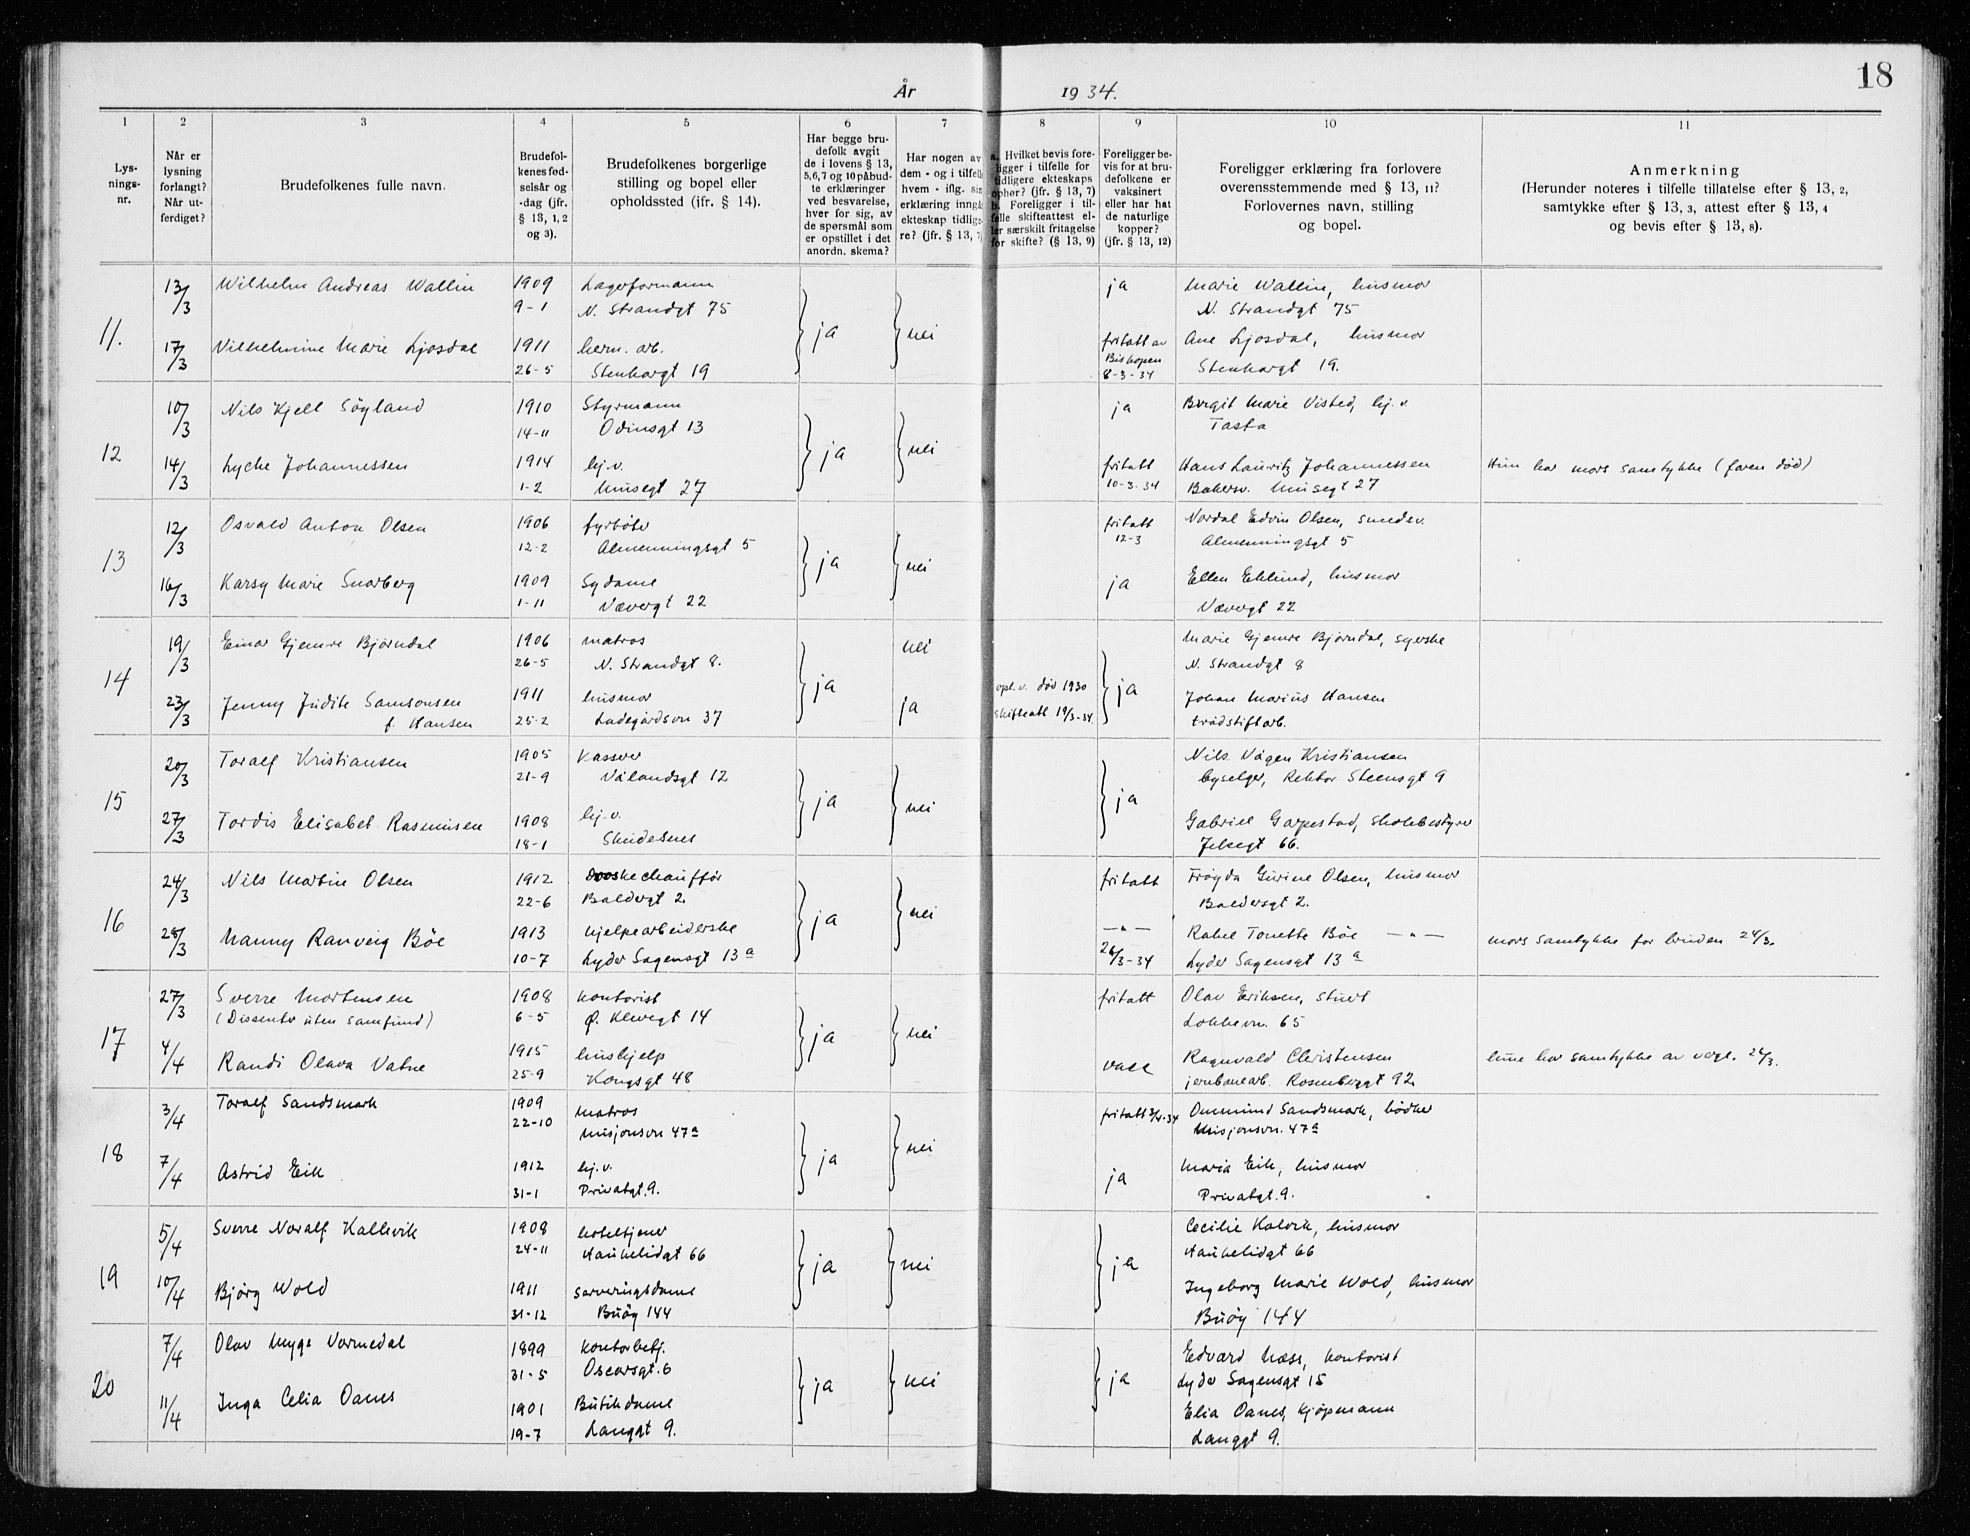 18
År 1934.
1 2 3 4 5 6 7 8 9 10 11
Lys-
nings-
nr.
Når er
lysning
forlangt?
Når ut-
ferdiget?
Brudefolkenes fulle navn.
Brudefol-
kenes fød-
selsår og
-dag (jfr.
§ 13, 1, 2
og 3).
Brudefolkenes borgerlige
stilling og bopel eller
opholdssted (ifr. § 14).
Har begge bru-
defolk avgit
de i lovens § 13,
5,6,7 og 10 påbud-
te erklæringer
ved besvarelse,
hver for sig, av
de spørsmål som
er opstillet i det
anordn. skema?
Har nogen av
dem - og i tilfelle
hvem - iflg. sin
erklæring inngå
ekteskap tidlige-
re? (jfr. § 13, 7)
a. Hvilket bevis fore-
ligger i tilfelle for
tidligere ekteskaps
opher? (jfr. § 13, 7)
b. Foreligger i til-
felle skifteattest el-
ler særskilt fritagelse
for skifte? (§ 13, 9)
Foreligger be-
vis for at bru-
defolkene er
vaksinert
eller har hat
de naturlige
kopper?
(jfr. § 13, 12)
Foreligger erklæring fra forlovere
overensstemmende med § 13, 11?
Forlovernes navn, stilling
og bopel.
Anmerkning
(Herunder noteres i tilfelle tillatelse efter § 13, 2,
samtykke efter § 13, 3, attest efter § 13, 4
og bevis efter § 13, 8).
11. 13/3 Wilhelm Andreas Wallin 1909 Lagerformann ja nei ja Marie Wallin, husmor
9-1 N. Strandgt 75 N. Strandgt 75
17/3 Vilhelmine Marie Ljosdal 1911 herm. arb. fritatt av Ane Ljosdal, husmor
26-5 Stenhargt 19 Bishopen 8-3-34 Stenhargt 19.
12 10/3 Nils Kjell Søyland 1910 Styrmann ja nei ja Bergit Marie Visted, hj. v.
14-11 Odinsgt 13 Tasta
14/3 Lyche Johannessen 1914 hj. v. fritatt Hans Lauritz Johannessen Hun har mors samtykke (faren død)
1-2 Musegt 27 10-3-34 Bakersv. Musegt 27
13 12/3 Osvald Anton Olsen 1906 fyrbøter ja nei fritatt Nordal Edvin Olsen, smedsv.
12-2 Almenningsgt 5 12-3 Almenningsgt 5
16/3 Karsy Marie Snarberg 1909 Sydame ja Ellen Eklund, husmor
1-11 Vævergt 22 Vævergt 22
14 19/3 Einar Gjemre Bjørndal 1906 matros ja nei ja Marie Gjemre Bjørndal, syerske
26-5 N. Strandgt 8. N. Strandgt 8
23/3 Jenny Judite Samsonsen 1911 husmor ja opl. v. død 1930 Johan Marius Hansen
f. Hansen 25-2 Ladegårdsvn 37 skifteatt 19/3-34. trådstiftarb.
15 20/3 Toralf Kristiansen 1905 Kasser ja nei ja Nils Vågen Kristiansen
21-9 Vålandsgt 12 byselger, Rektor Steensgt 9
27/3 Tordis Elisabet Rasmussen 1908 hj. v. Gabriel Garpestad, skolebestyrer
18-1 Skudesnes Jelsegt 66.
16 24/3 Nils Martin Olsen 1912 Drosjechauffør ja nei fritatt Frøyda Gurine Olsen, husmor
22-6 Baldersgt 2 Baldersgt 2.
28/3 Nanny Ranveig Bøe 1913 Hjelpearbeiderske —"— Rahel Tonette Bøe —"— mors samtykke for bruden 24/3.
10-7 Lyder Sagensgt 13a 26/3-34 Lyder Sagensgt 13a
17 27/3 Sverre Mortensen 1908 kontorist ja nei fritatt Olav Eriksen, stuert
(Dissenter uten samfund) 6-5 Ø. Klevegt 14 Lokkevn. 65
4/4 Randi Olava Vatne 1915 hushjelp vacc Ragnvald Christensen hun har samtykke av verge. 26/3.
25-9 Kongsgt 48 jernbanearb. Rosenberggt 92
18 3/4 Toralf Sandsmark 1909 matros ja nei fritatt 3/4-34 Ommund Sandsmark, bødker
22-10 Misjonsvn 47a Misjonsvn. 47a
7/4 Astrid Eik 1912 hj. v. ja Maria Eik, husmor
31-1 Privatgt. 9. Privatgt. 9.
19 5/4 Sverre Noralf Kallevik 1908 hoteltjener ja nei ja Cecilie Kalvik, husmor
24-11 Haukelidgt 66 Haukelidgt 66
10/4 Bjørg Wold 1911 serveringsdame Ingeborg Marie Wold, husmor
31-12 Buøy 144 Buøy 144
20 7/4 Olav Myge Varmedal 1899 kontorbetj. ja nei ja Edvard Næss, kontorist
31-5 Oscarsgt. 6 Lyder Sagensgt 15
11/4 Inga Celia Oanes 1901 Butikdame Elia Oanes, kjøpmann
19-7 Langgt 9. Langgt 9.